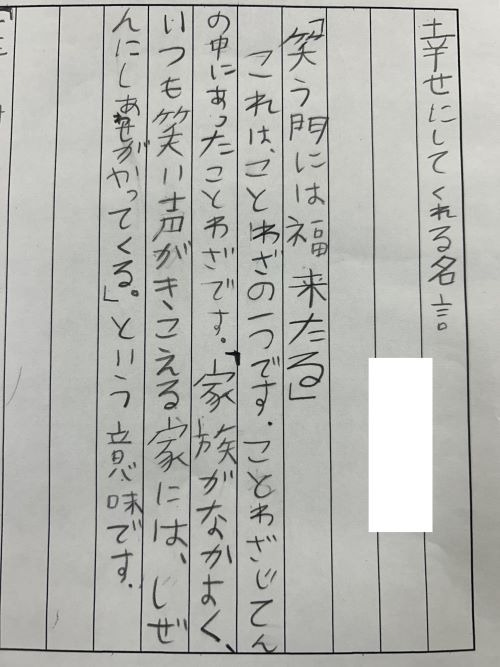 幸せにしてくれる名言
「笑う門には福来たる」
これは、ことわざの一つです。ことわざじてん
の中にあったことわざです。「家族がなかよく、
いつも笑い声がきこえる家には、しぜ
んにしあわせがやってくる。」という意味です。